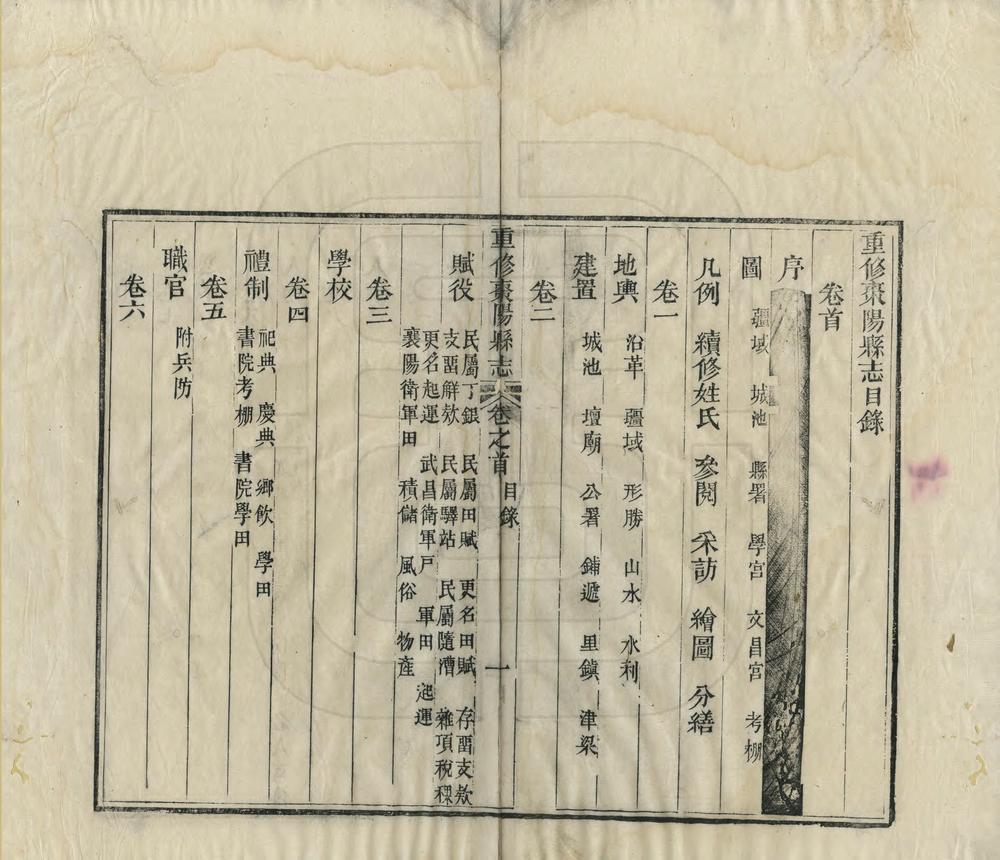 重修棗陽縣志目錄
卷首
序
圖 疆域 城池 縣署 學宮 文昌宮 考棚
凡例 續修姓氏 參閱 采訪 繪圖 分繕
卷一
地輿 沿革 疆域 形勝 山水 水利
建置 城池 壇廟 公署 鋪遞 里鎮 津梁
卷二
重修棗陽縣志 卷之首 目錄 一
賦役 民屬丁銀 民屬田賦 更名田賦 存畱支款
支畱解欵 民屬驛站 民屬隨漕 雜項稅課
更名起運 武昌衛軍戶 軍田 起運
襄陽衛軍田 積儲 風俗 物產
卷三
學校
卷四
禮制 祀典 慶典 鄉飲 學田
書院考棚 書院學田
卷五
職官 附兵防
卷六